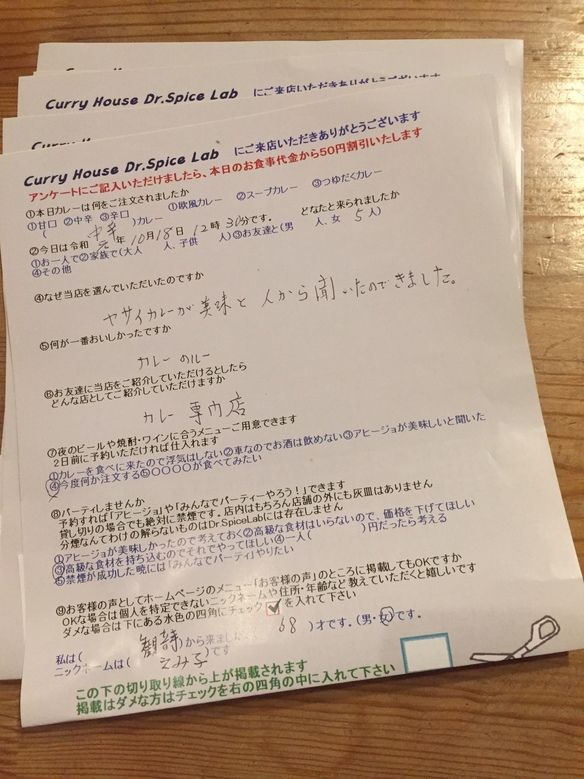 Curry House Dr.Spice Lab にご来店いただきありがとうございます
Curry House Dr.Spice Lab にご来店いただきありがとうございます
アンケートにご記入いただけましたら、本日のお食事代金から50円割引いたします
①本日カレーは何をご注文されましたか
①甘口 ②中辛 ③辛口 ①欧風カレー ②スープカレー ③つゆだくカレー
( 中辛 )カレー
②今日は令和 元 年 10月 18日 12時 30分です。 どなたと来られましたか
①お一人で②家族で(大人 人、子供 人)③お友達と(男 人、女 5人)
④その他
④なぜ当店を選んでいただいたのですか
ヤサイカレーが美味と人から聞いたのできました。
⑤何が一番おいしかったですか
カレーのルー
⑥お友達に当店をご紹介していただけるとしたら
どんな店としてご紹介していただけますか
カレー専門店
⑦夜のビールや焼酎・ワインに合うメニューご用意できます
2日前に予約いただければ仕入れます
①カレーを食べに来たので浮気はしない②車なのでお酒は飲めない③アヒージョが美味しいと聞いた
④今度何か注文する⑤〇〇〇〇が食べてみたい
⑧パーティしませんか
予約すれば「アヒージョ」や「みんなでパーティーやろう!」できます
貸し切りの場合でも絶対に禁煙です。店内はもちろん店舗の外にも灰皿はありません
分煙なんてわけの解らないものはDr.SpiceLabには存在しません
①アヒージョが美味しかったので考えておく②高級な食材はいらないので、価格を下げてほしい
③高級な食材を持ち込むのでそれでやってほしい④一人( )円だったら考える
⑤禁煙が成功した暁には「みんなでパーティ」やりたい
⑨お客様の声としてホームページのメニュー「お客様の声」のところに掲載してもOKですか
OKな場合は個人を特定できないニックネームや住所・年齢など教えていただくと嬉しいです
ダメな場合は下にある水色の四角にチェック を入れて下さい
私は( 観音寺 )から来ました 68 )才です。(男・女)です。
ニックネームは( えみ子 )です
この下の切り取り線から上が掲載されます
掲載はダメな方はチェックを右の四角の中に入れて下さい